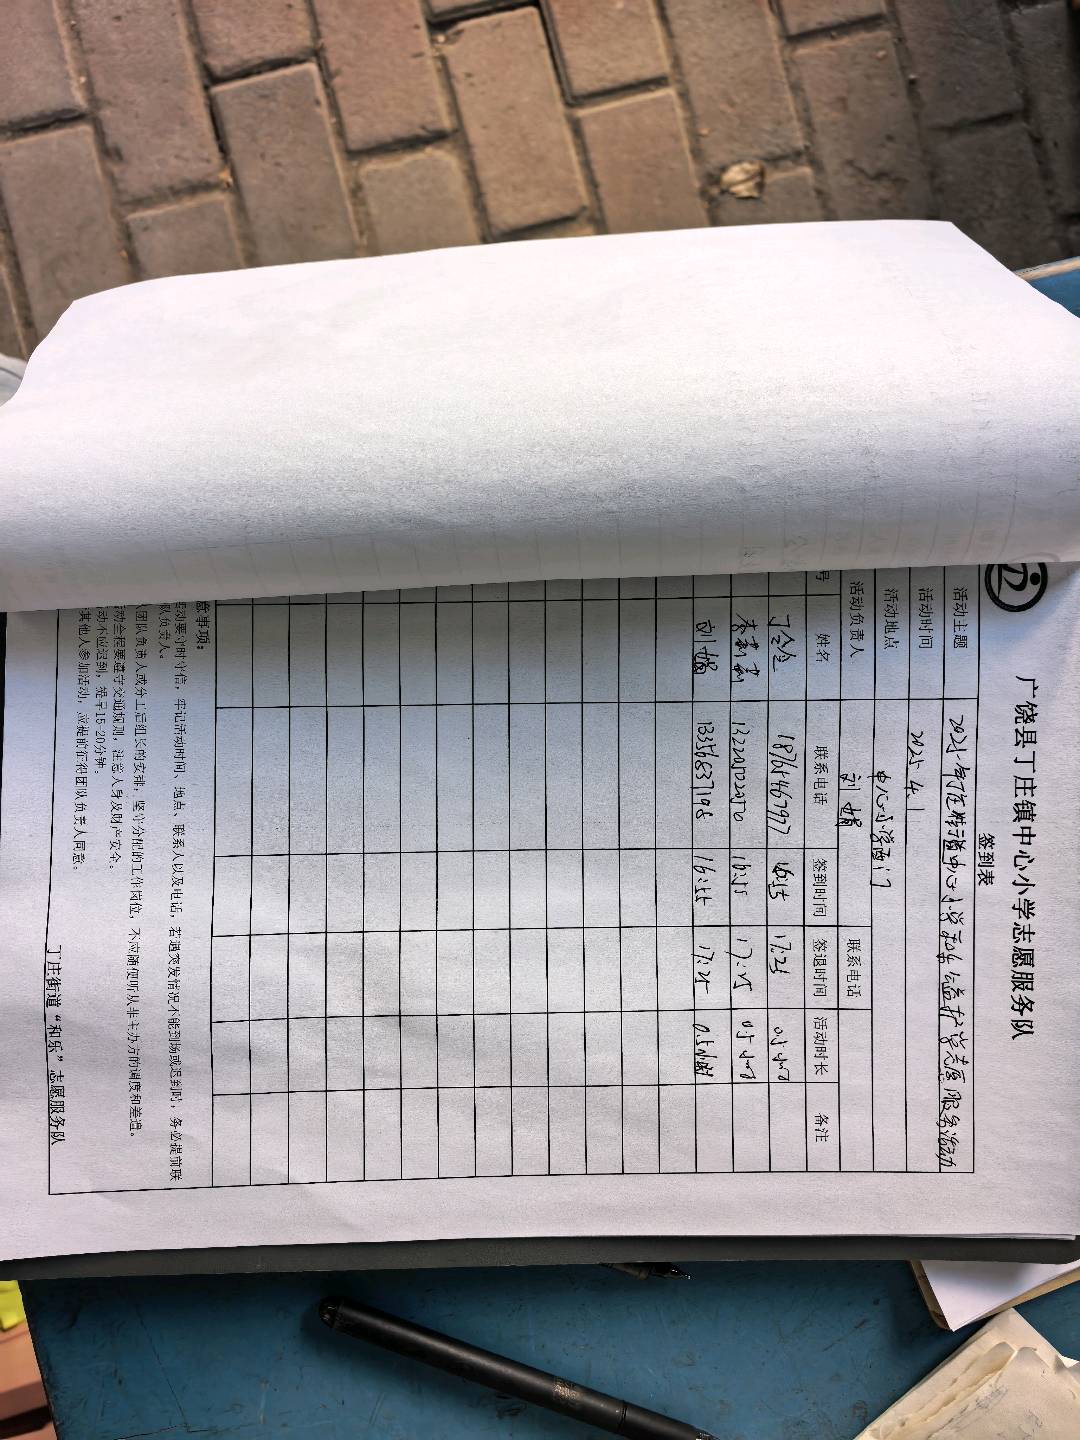 广饶县丁庄镇中心小学志愿服务队
签到表
活动主题 2025年丁庄街道中心小学和乐公益护学志愿服务活动
活动时间 2025.4.1
活动地点 中心小学西门
活动负责人 刘娟 联系电话
号 姓名 联系电话 签到时间 签退时间 活动时长 备注
18765467977 16:55 17:25 0.5小时
李莉莉 13220522050 16:55 17:25 0.5小时
刘娟 13356837198 16:55 17:25 0.5小时
意事项:
活动要守时守信,牢记活动时间、地点、联系人以及电话,若遇突发情况不能到场或迟到时,务必提前联
队负责人。
团队负责人或分工后组长的安排,坚守分配的工作岗位,不应随便听从非主办方的调度和差遣。
动全程要遵守交通规则,注意人身及财产安全。
动不应迟到,提早15-20分钟。
其他人参加活动,应提前征得团队负责人同意。
丁庄街道“和乐”志愿服务队